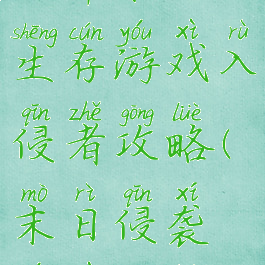 shēng cún yóu xì rù
生存游戏入
qīn zhě gōng lüè
侵者攻略(
mò rì qīn xí
末日侵袭